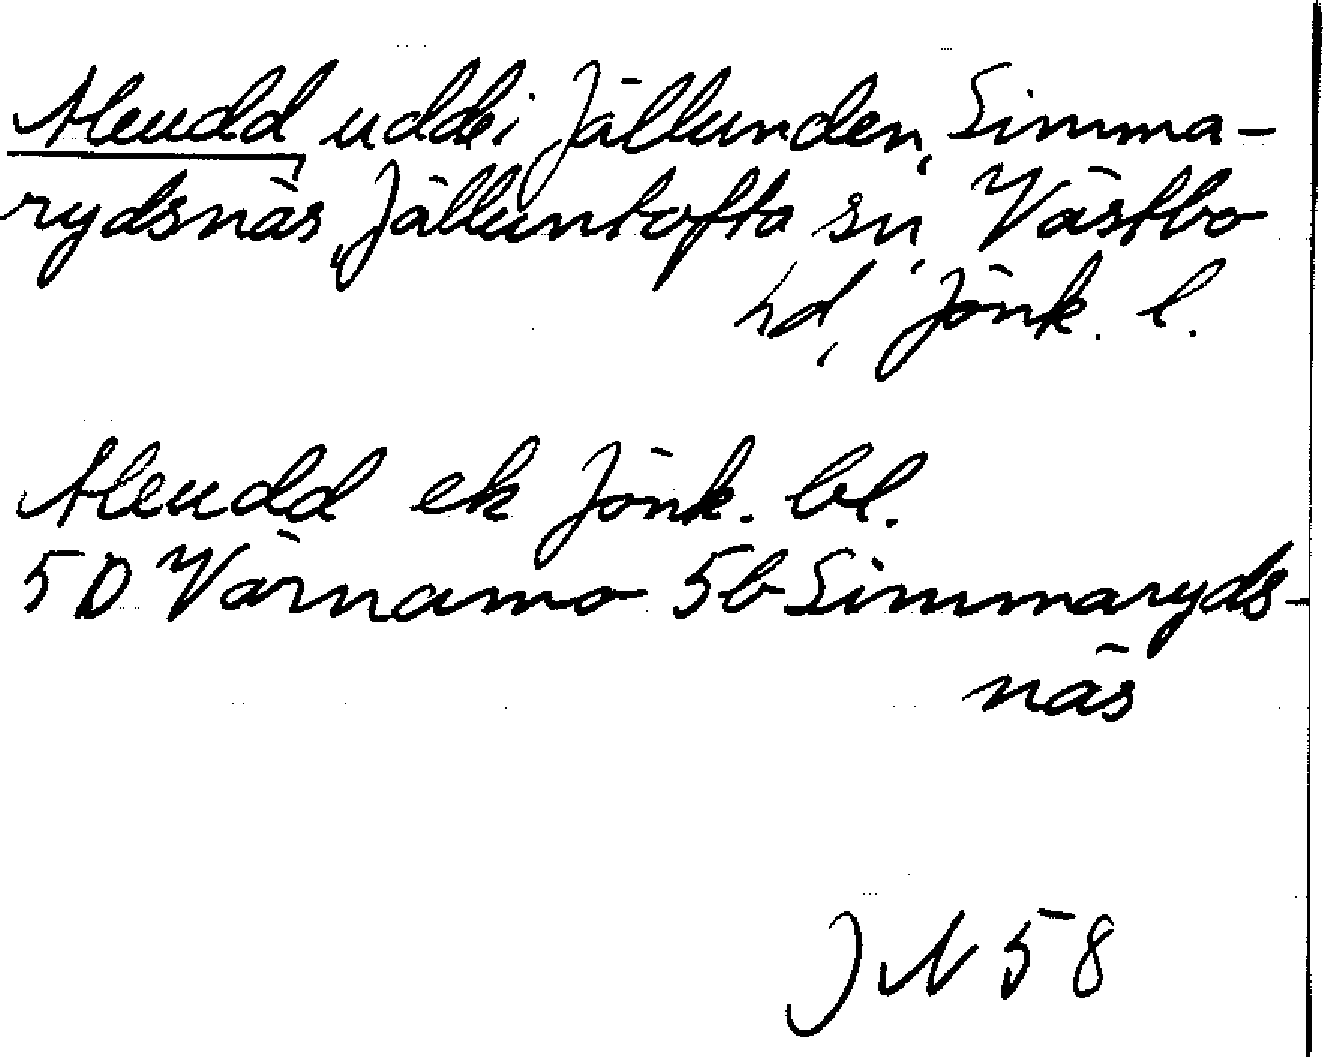 Aleudd udde i Jällunden, Simma-
rydsnäs, Jälluntofta sn, Västbo
hd, Jönk. l.
Aleudd ek Jönk. bl.
5D Värnamo 5b Simmaryds-
näs
JN 58